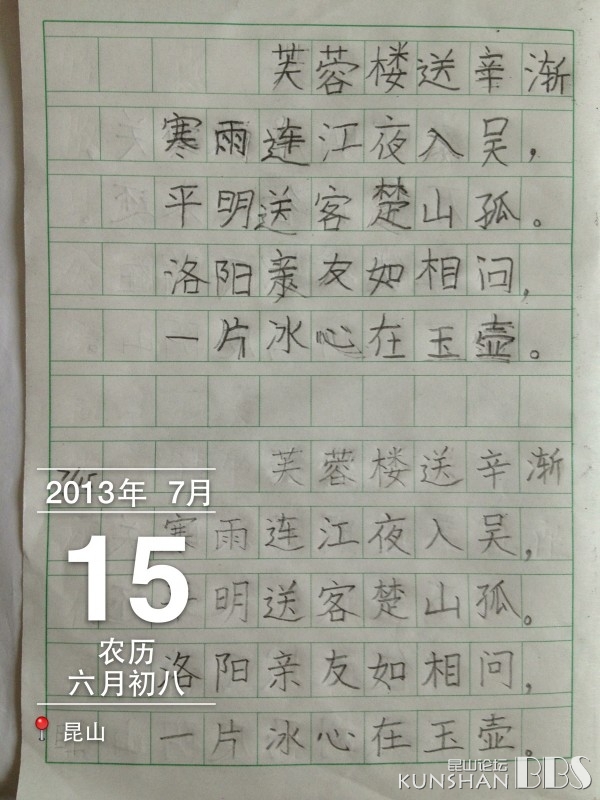 芙蓉楼送辛渐
寒雨连江夜入吴，
平明送客楚山孤。
洛阳亲友如相问，
一片冰心在玉壶。
7/15
芙蓉楼送辛渐
2013年 7月
寒雨连江夜入吴，
15
明送客楚山孤。
农历
洛阳亲友如相问，
六月初八
昆山
一片冰心在玉壶。
昆山论坛
KUNSHAN BBS